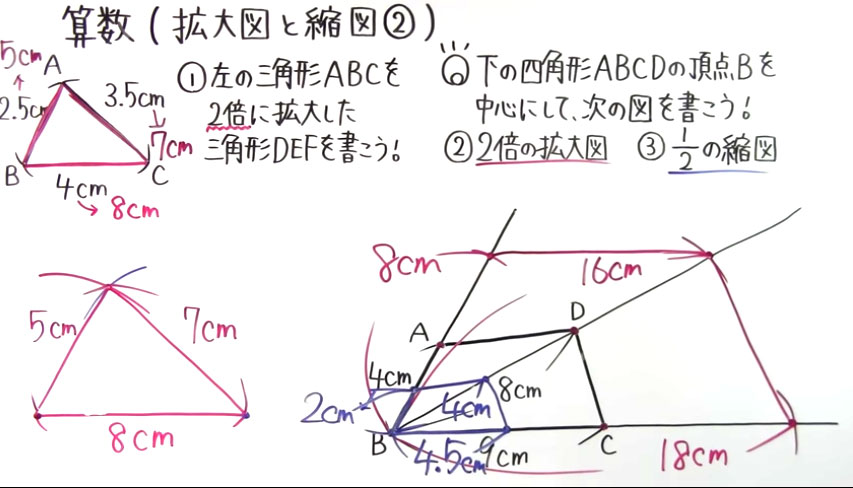 算数(拡大図と縮図②)
①左の三角形ABCを
2倍に拡大した
三角形DEFを書こう!
下の四角形ABCDの頂点Bを
中心にして、次の図を書こう!
②2倍の拡大図 ③1/2の縮図
5cm
A
2.5cm
3.5cm
7cm
B
C
4cm
8cm
5cm
7cm
8cm
8cm
16cm
A
D
4cm
8cm
2cm
4cm
B
4.5cm
9cm
C
18cm